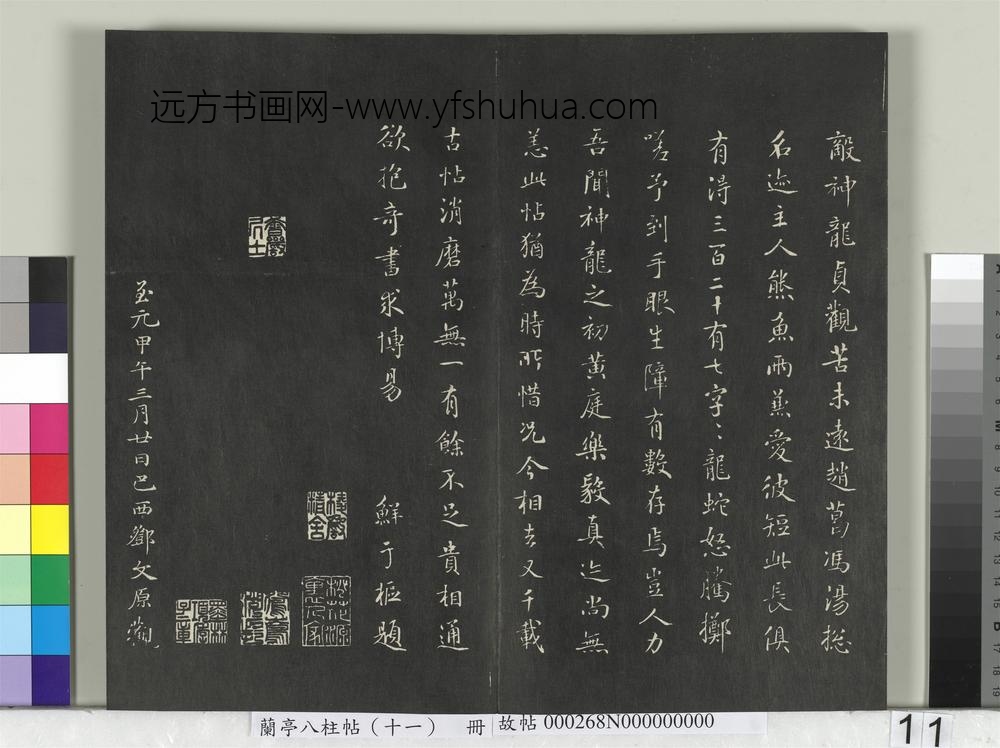 远方书画网-www.yfshuhua.com
敵神龍貞觀苦未遠趙葛馮湯捴
名迹主人熊魚兩兼愛彼短此長俱
有得三百二十有七字〻龍蛇怒騰擲
嗟予到手眼生障有數存焉豈人力
吾聞神龍之初黄庭樂毅真迹尚無
恙此帖猶為時所惜况今相去又千載
古帖消磨萬無一有餘不足貴相通
欲抱奇書求博易 鮮于樞題
至元甲午三月廿日巴西鄧文原觀
項墨林
子章
桃花源
裏人家
蘭亭八柱帖（十一） 冊
故帖 000268N000000000
11